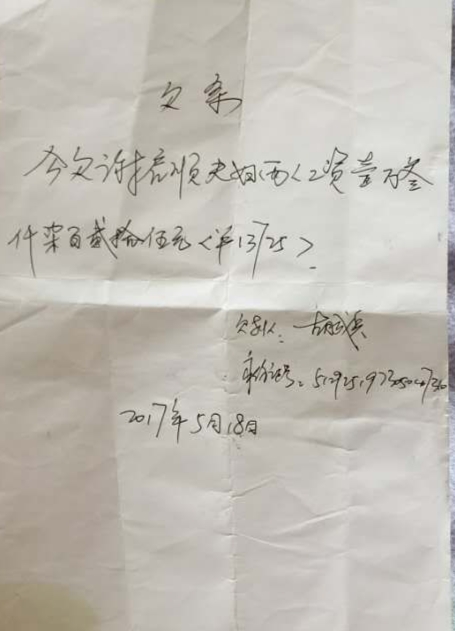 欠条
今欠许培顺夫妇两人工资壹万叁
仟柒百贰拾伍元<¥13725>
欠款人:
身份证号:
2017年5月18日